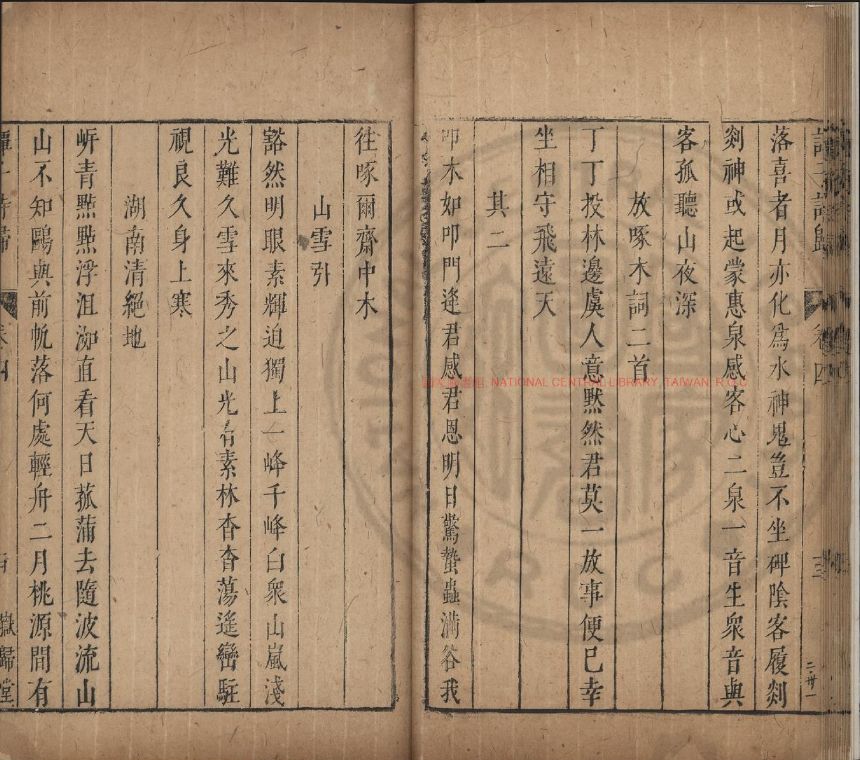 譚子詩歸 卷四 三
二卅一
落喜者月亦化為水神鬼豈不坐碑陰客履剡
剡神或起蒙惠泉感客心二泉一音生衆音與
客孤聽山夜深
放啄木詞二首
丁丁投林邊虞人意黙然君莫一放事便巳幸
坐相守飛遠天
其二
叩木如叩門逢君感君恩明日驚蟄蟲滿谷我
徃啄爾齋中木
山雪引
豁然明眼素輝迫獨上一峰千峰白衆山嵐淺
光難久雪來秀之山光有素林杳杳蕩遙巒駐
視良久身上寒
湖南清絕地
岍青㸃㸃浮沮洳直看天日菰蒲去隨波流山
山不知鷗與前帆落何處輕舟二月桃源間有
譚子詩歸 卷四 嶽歸堂
國家圖書館, NATIONAL CENTRAL LIBRARY, TAIWAN, R.O.C